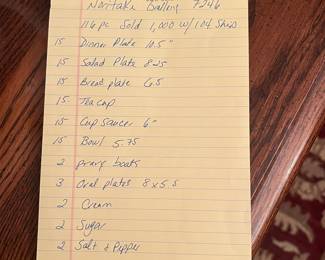 Noritake 7246
116 pc Sold 1,000 w/ 104 Ship
15 Dinner Plate 10.5"
15 Salad Plate 8.25
15 Bread plate 6.5
15 Tea cup
15 Cup Saucer 6"
15 Bowl 5.75
2 gravy boats
3 Oval plates 8 x 5.5
2 Cream
2 Sugar
2 Salt & Pepper